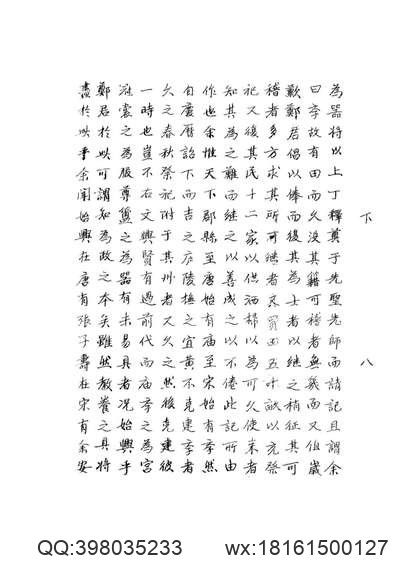 為器將以上丁釋奠于先聖先師而請記且謂余
曰李故有田而久沒其籍可稽者無幾而又但歲
歉鄭君倡以俸而後其為士者以継之稍征其可
稽者多方求其所可継者又買田五叶畝以充祭
祀又復其民十二家以供洒掃以為可久使来者
知其為之難而継之以善成之以不倦此記所由
作也余惟天下郡縣至唐始有廟至宋始有李然
自慶暦詔下而吉之庐陵撫之宜黄克建李者
久之春秋祭祀附于其州者又久之然後克建彼
一時也豈不右文興政為賢有過前代而庙李之為宮
冠裳之為服籩簋為之器有未易具者况始興乎
鄭君於以可謂知為之有本矣雖然教養之具將
盡於以乎余聞始興在唐有張子壽在宋有余安
下
八
QQ:398035233 wx:18161500127